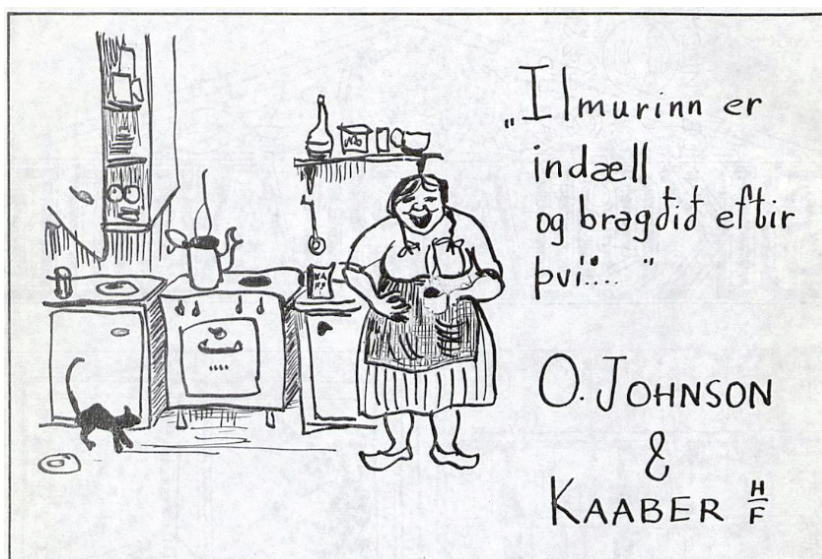 „Ilmurinn er
indæll
og bragðið eftir
því...."
O. JOHNSON
&
KAABER H/F